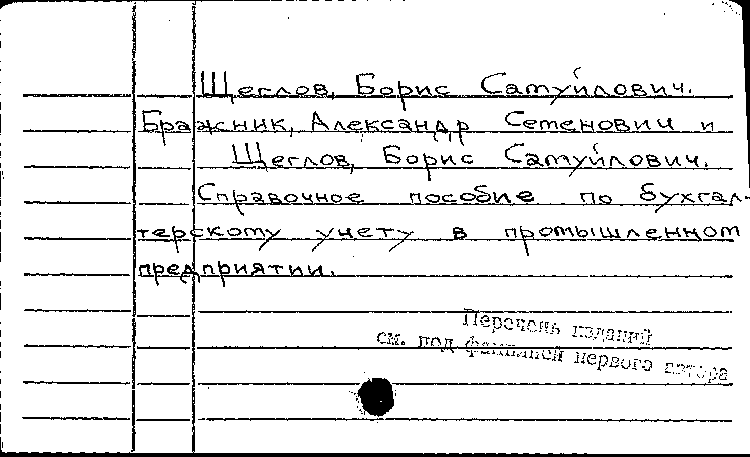 Щеглов, Борис Самуйлович.
Бражник, Александр Семенович и
Щеглов, Борис Самуйлович.
Справочное пособие по бухгал-
терскому учету в промышленном
предприятии.
Перечень изданий
см. под фамилией первого автора